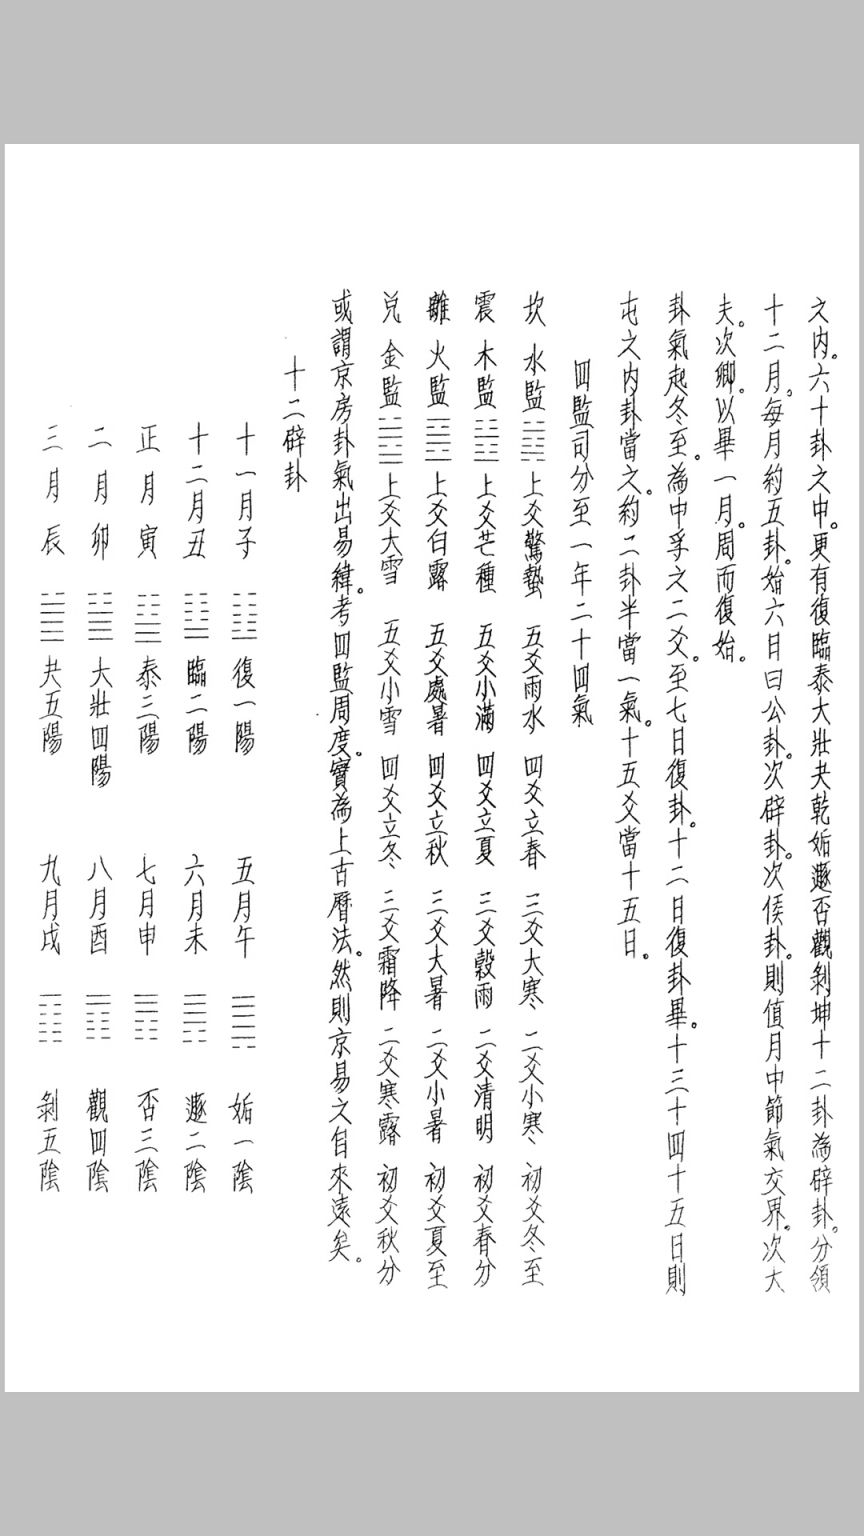 之内。六十卦之中。更有復臨泰大壯夬乾姤遯否觀剝坤十二卦為辟卦。分領
十二月。每月約五卦。始六日曰公卦。次辟卦。次侯卦。則值月中節氣交界。次大
夫。次卿。以畢一月。周而復始。
卦氣起冬至。為中孚之二爻。至七日復卦。十二日復卦畢。十三十四十五日則
屯之内卦當之。約二卦半當一氣。十五爻當十五日。
四監司分至一年二十四氣
坎 水監 ䷜ 上爻驚蟄 五爻雨水 四爻立春 三爻大寒 二爻小寒 初爻冬至
震 木監 ䷲ 上爻芒種 五爻小滿 四爻立夏 三爻穀雨 二爻清明 初爻春分
離 火監 ䷝ 上爻白露 五爻處暑 四爻立秋 三爻大暑 二爻小暑 初爻夏至
兌 金監 ䷹ 上爻大雪 五爻小雪 四爻立冬 三爻霜降 二爻寒露 初爻秋分
或謂京房卦氣出易緯。考四監周度。實為上古曆法。然則京易之自來遠矣。
十二辟卦
十一月子 ䷗ 復一陽 五月午 ䷫ 姤一陰
十二月丑 ䷒ 臨二陽 六月未 ䷠ 遯二陰
正月寅 ䷊ 泰三陽 七月申 ䷋ 否三陰
二月卯 ䷡ 大壯四陽 八月酉 ䷓ 觀四陰
三月辰 ䷪ 夬五陽 九月戌 ䷖ 剝五陰